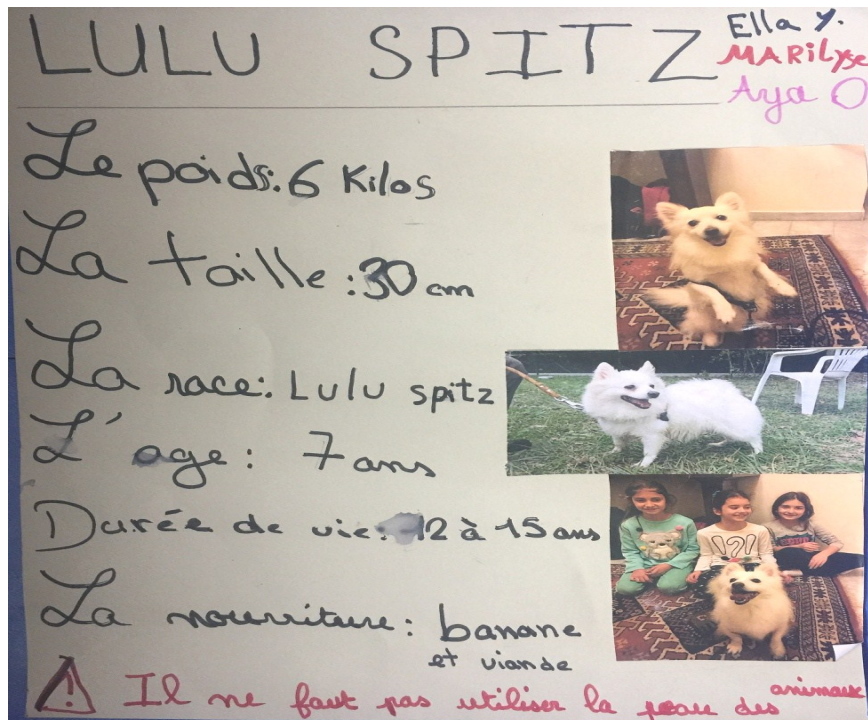 LULU SPITZ
Ella Y.
MARilyse
Aya O
Le poids: 6 Kilos
La taille: 30 cm
La race: Lulu spitz
L'age: 7 ans
Durée de vie: 12 à 15 ans
La nourriture: banane
et viande
! Il ne faut pas utiliser la peau des animaux